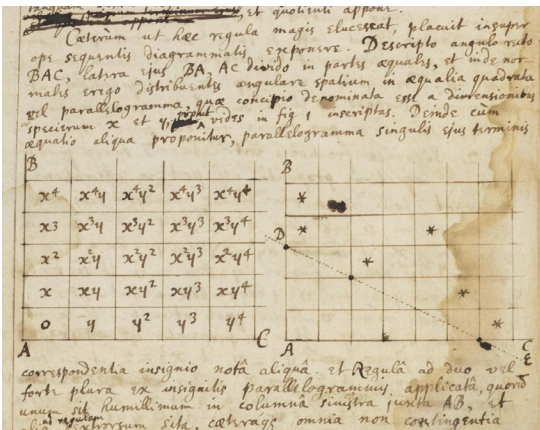 et quotienti appone.
Cæterùm ut hæc regula magis elucescat, placuit insuper
ope sequentis diagrammatis exponere. Descripto angulo recto
BAC, latera ejus BA, AC divido in partes æquales, et inde nor-
males erigo distribuentes angulare spatium in æqualia quadrata
vel parallelogramma, quæ concipio denominata esse a dimensionibus
specierum x et y, prout vides in fig 1 inscriptas. Deinde cùm
æquatio aliqua proponitur, parallelogramma singulis ejus terminis
B
x4 x4y x4y2 x4y3 x4y4
x3 x3y x3y2 x3y3 x3y4
x2 x2y x2y2 x2y3 x2y4
x xy xy2 xy3 xy4
0 y y2 y3 y4
A C
B
*
* *
D
*
*
*
A C
E
correspondentia insignio notâ aliquâ. et Regulâ ad duo vel
forte plura ex insignitis parallelogrammis applicatâ, quorum
unum sit humillimum in columnâ sinistrâ juxta AB, et
ad regulam dextrorsum sita, cæteraque omnia non contingentia